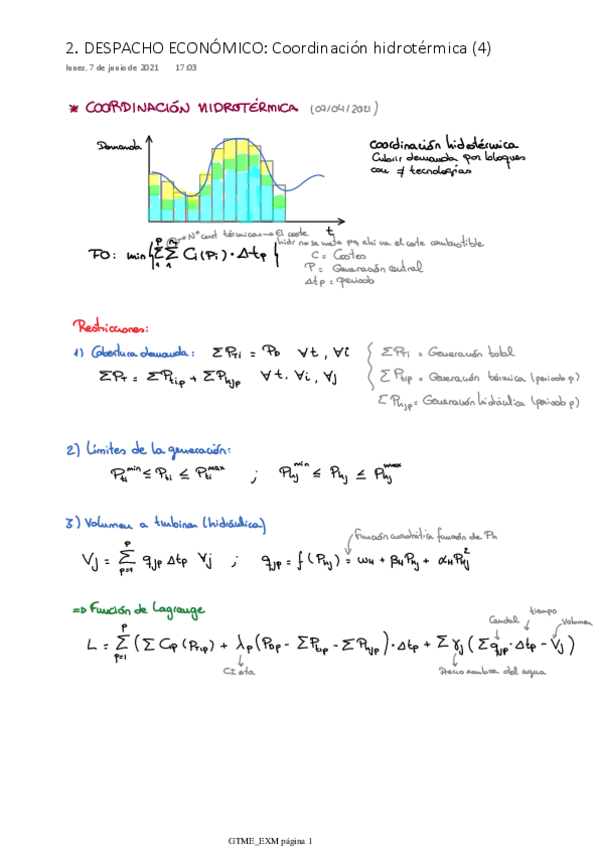 2. DESPACHO ECONÓMICO: Coordinación hidrotérmica (4)
lunes, 7 de junio de 2021 17:03
* COORDINACIÓN HIDROTÉRMICA (07/04/2021)
Demanda
t
Coordinación hidrotérmica
Cubrir demanda por bloques
con ≠ tecnologías
Nº cent térmicas → El coste
hidr no se mete pq ahí va el coste combustible
FO: min { Σ Σ Ci(Pi) · Δtp }
C = Costes
P = Generación central
Δtp = periodo
Restricciones:
1) Cobertura demanda: ΣPTi = PD ∀t, ∀i
ΣPTi = Generación total
ΣPT = ΣPtip + ΣPHjp ∀t, ∀i, ∀j
ΣPtip = Generación térmica (periodo p)
ΣPHjp = Generación hidráulica (periodo p)
2) Límites de la generación:
Pti^min ≤ Pti ≤ Pti^max ; PHj^min ≤ PHj ≤ PHj^max
3) Volumen a turbinar (hidráulica)
Función cuadrática función de PH
Vj = Σ(p=1, P) qjp Δtp ∀j ; qjp = f(PHj) = ωH + βH PHj + αH PHj²
⇒ Función de Lagrange
Caudal tiempo Volumen
L = Σ(p=1, P) (Σ Cip(PTip) + λp(PDp - ΣPtip - ΣPHjp) · Δtp + Σ γj (Σqjp · Δtp - Vj)
Precio sombra del agua
GTME_EXM página 1